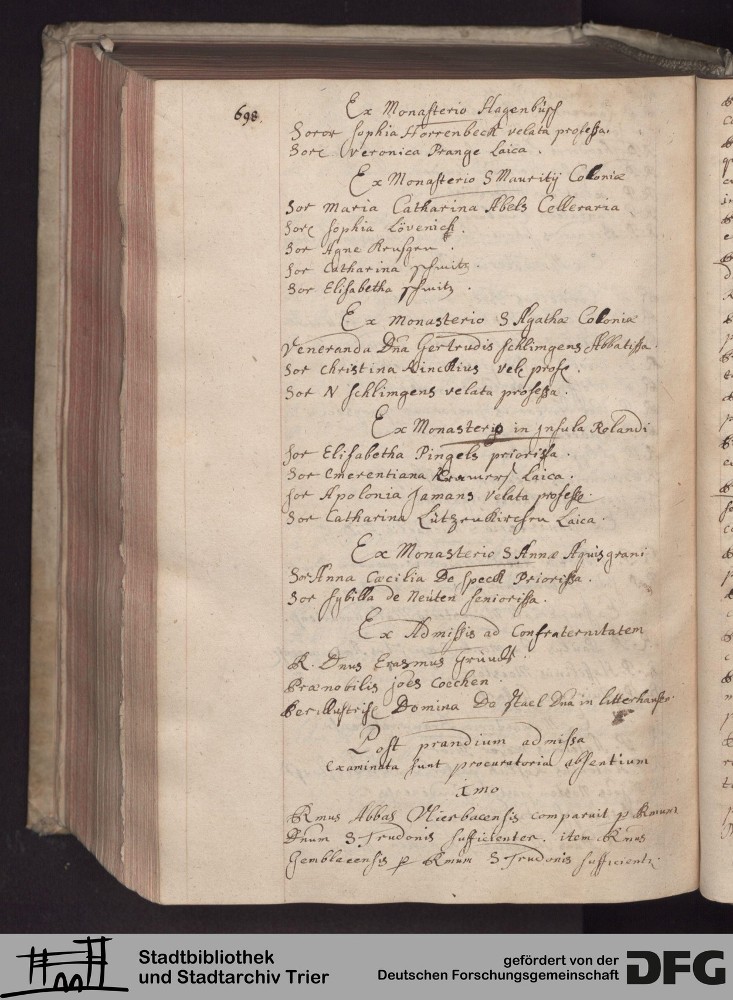 698.
Ex Monasterio Hagenbüsch
Soror Sophia Horrenbeck velata professa.
Sorc Veronica Prange Laica.
Ex Monasterio S Mauritij Coloniæ
Sor Maria Catharina Abels Celleraria
Sorc Sophia Lövenich.
Sor Agne
Sor Catharina Schmitz.
Sor Elisabetha Schmitz.
Ex Monasterio S Agathæ Coloniæ
Veneranda Dna Gertrudis Schlimgens Abbatissa.
Sor Christina Ninckius vel profe.
Sor N Schlimgens velata professa.
Ex Monasterio in Insula Rolandi
Sor Elisabetha Pingels priorissa.
Sor Emerentiana Laica.
Sor Apolonia Jamans Velata professa.
Sor Catharina Lützenkirchen Laica.
Ex Monasterio S Annæ Aquisgrani
Sor Anna Cæcilia De Speck Priorissa.
Sor Sybilla de Neüten Seniorissa.
Ex Admissis ad Confraternitatem
R. Dnus Erasmus
Prænobilis joes Coechen.
Perillustris Domina De Stael Dna in
Post prandium admissa
Examinata sunt procuratoria absentium
imo
Rmus Abbas Vlierbacensis comparuit p Rmum
Dnum S Trudonis sufficienter. item Rmus
Gemblacensis p Rmum S Trudonis sufficient.
Stadtbibliothek
und Stadtarchiv Trier
gefördert von der
Deutschen Forschungsgemeinschaft
DFG